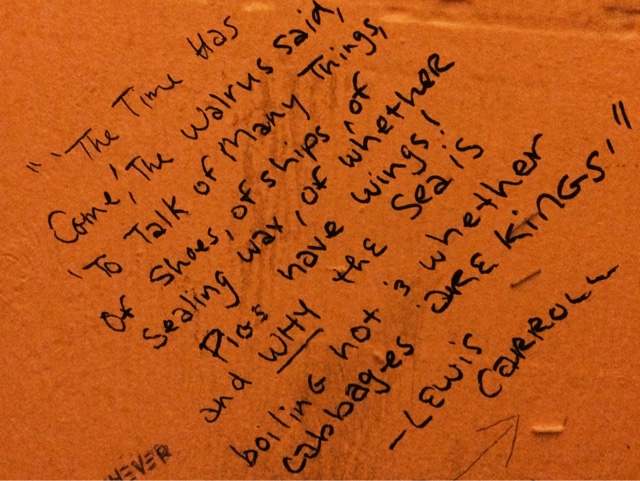 "'The Time Has
Come,' The Walrus said,
'To Talk of Many Things,
Of shoes, of ships, of
Sealing wax, of whether
Pigs have wings!
and WHY the Sea is
boiling hot & whether
cabbages are KINGS.'"
-LEWIS
CARROLL
HEVER